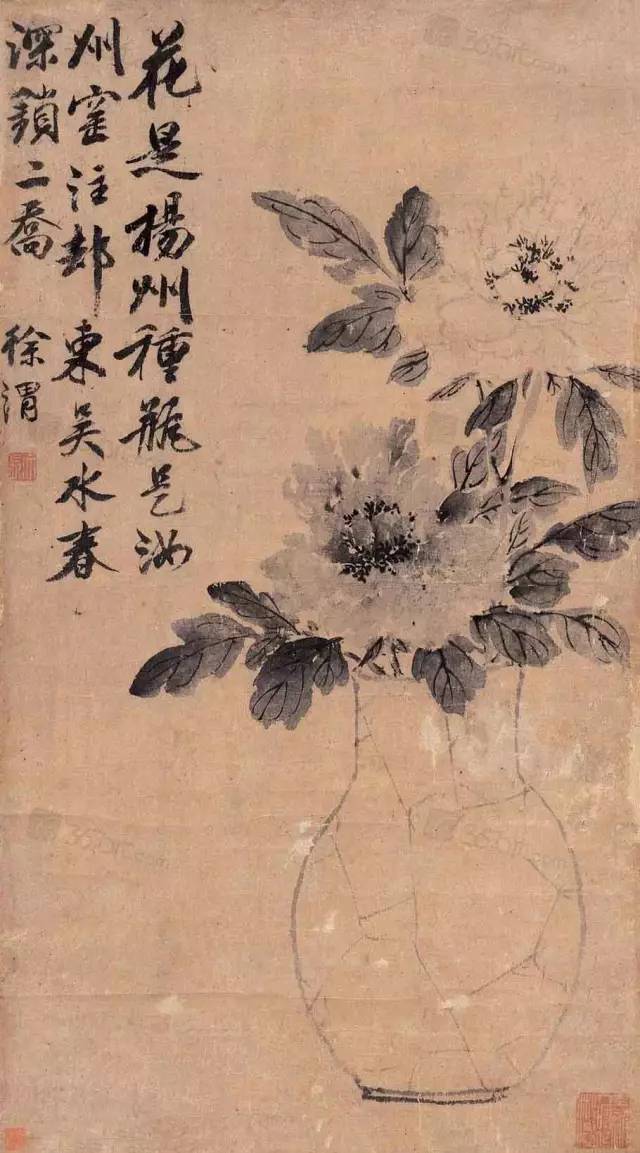 花是楊州種瓶是汝
州窑注却東吳水春
深鎖二喬
徐渭